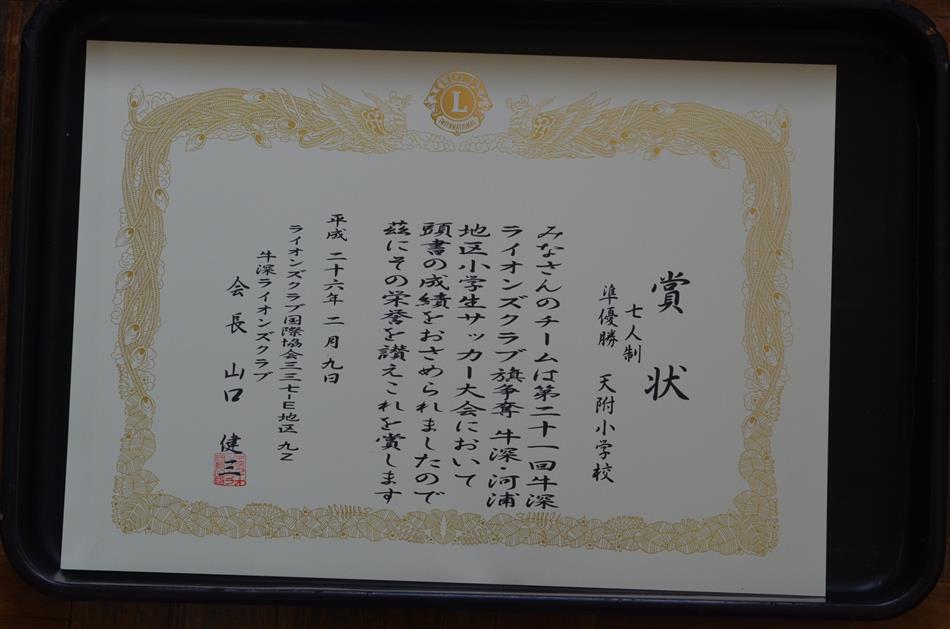 賞状
七人制
準優勝 天附小学校
みなさんのチームは第二十一回牛深
ライオンズクラブ旗争奪 牛深・河浦
地区小学生サッカー大会において
頭書の成績をおさめられましたので
茲にその栄誉を讃えこれを賞します
平成 二十六年 二月 九日
ライオンズクラブ国際協会三三七-E地区 九Z
牛深ライオンズクラブ
会長 山口 健三
LIONS
L
INTERNATIONAL